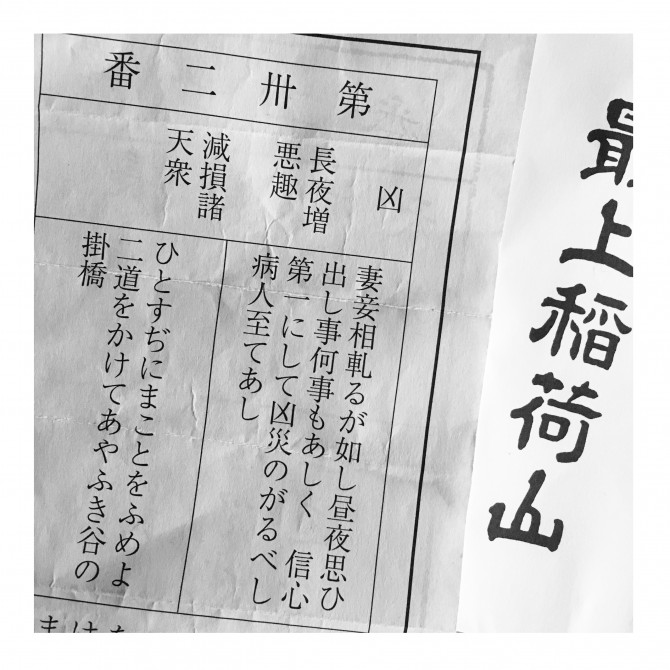 最上稲荷山
第卅二番
凶
長夜増
悪趣
減損諸
天衆
妻妾相軋るが如し昼夜思ひ
出し事何事もあしく　信心
第一にして凶災のがるべし
病人至てあし
ひとすぢにまことをふめよ
二道をかけてあやふき谷の
掛橋